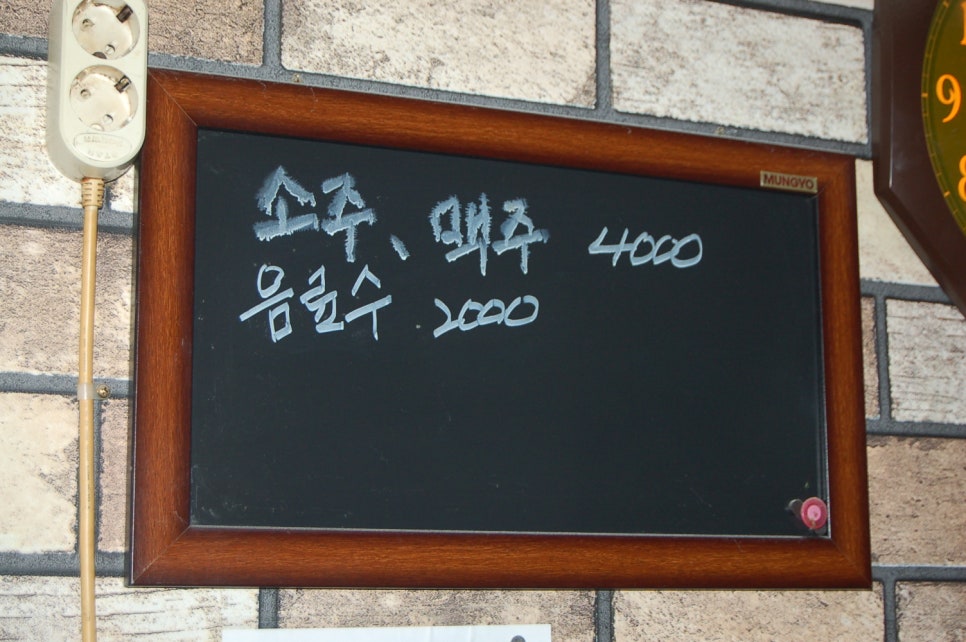 소주、맥주 4000
음료수 2000
MUNGYO
9
8